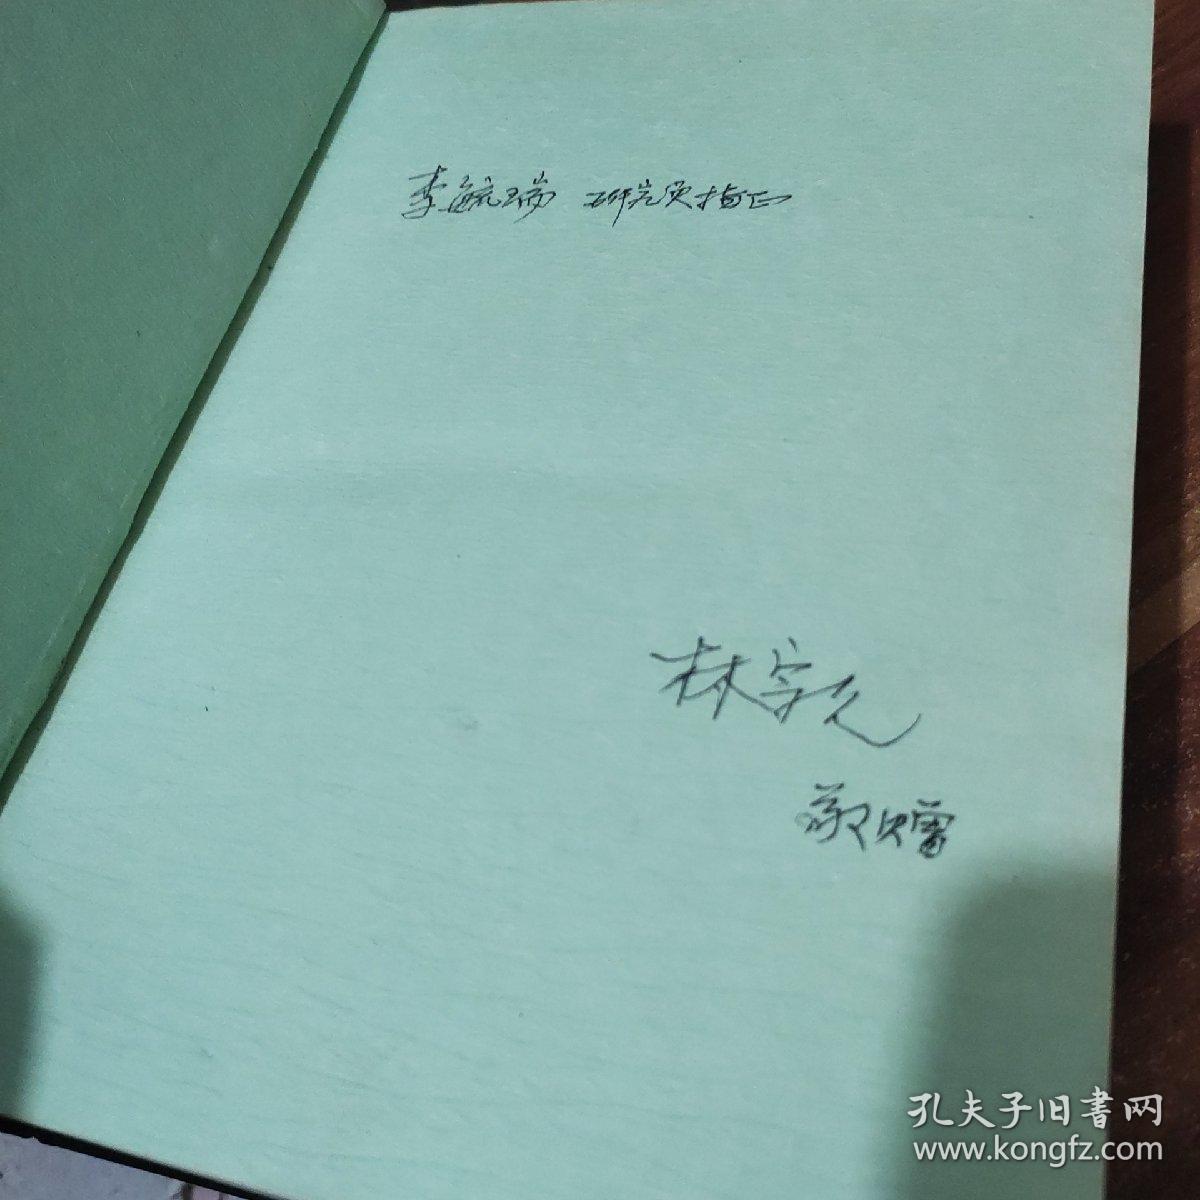 李毓瑞 研究员指正
林宗元
敬赠
孔夫子旧書网
www.kongfz.com